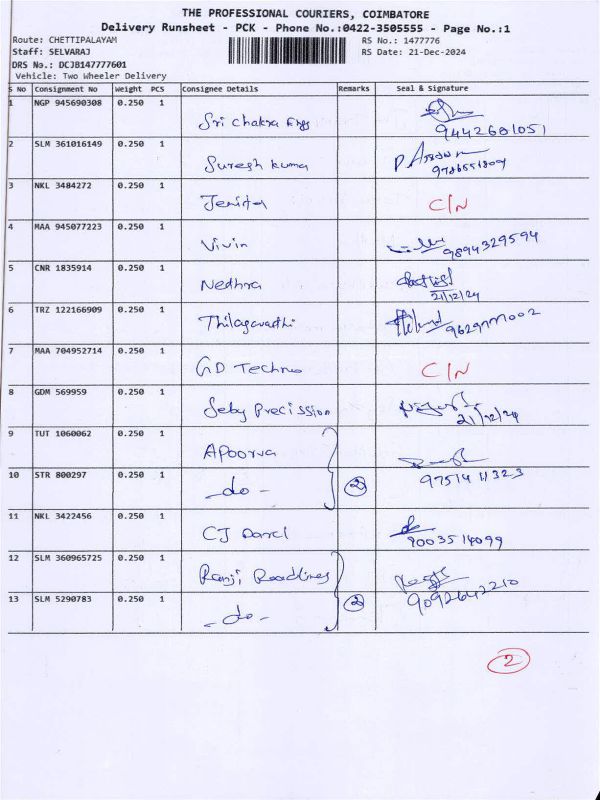 THE PROFESSIONAL COURIERS, COIMBATORE
Delivery Runsheet - PCK - Phone No.:0422-3505555 - Page No.:1
Route: CHETTIPALAYAM RS No.: 1477776
Staff: SELVARAJ RS Date: 21-Dec-2024
DRS No.: DCJB147777601
Vehicle: Two Wheeler Delivery
S No Consignment No Weight PCS Consignee Details Remarks Seal & Signature
1 NGP 945690308 0.250 1
Sri Chakra Engg 9442681051
2 SLM 361016149 0.250 1
Suresh kuma
3 NKL 3484272 0.250 1
Jenita C/N
4 MAA 945077223 0.250 1
Vivin 9894329594
5 CNR 1835914 0.250 1
Nedhra
21/12/24
6 TRZ 122166909 0.250 1
Thilagavadhi
7 MAA 704952714 0.250 1
GD Techno C/N
8 GDM 569959 0.250 1
Seby Precission 21/12/24
9 TUT 1060062 0.250 1
APoorva
10 STR 800297 0.250 1
-do- 2 9751411323
11 NKL 3422456 0.250 1
CJ 9003514099
12 SLM 360965725 0.250 1
Ranji Roadlines
13 SLM 5290783 0.250 1
-do- 2 9092642210
2